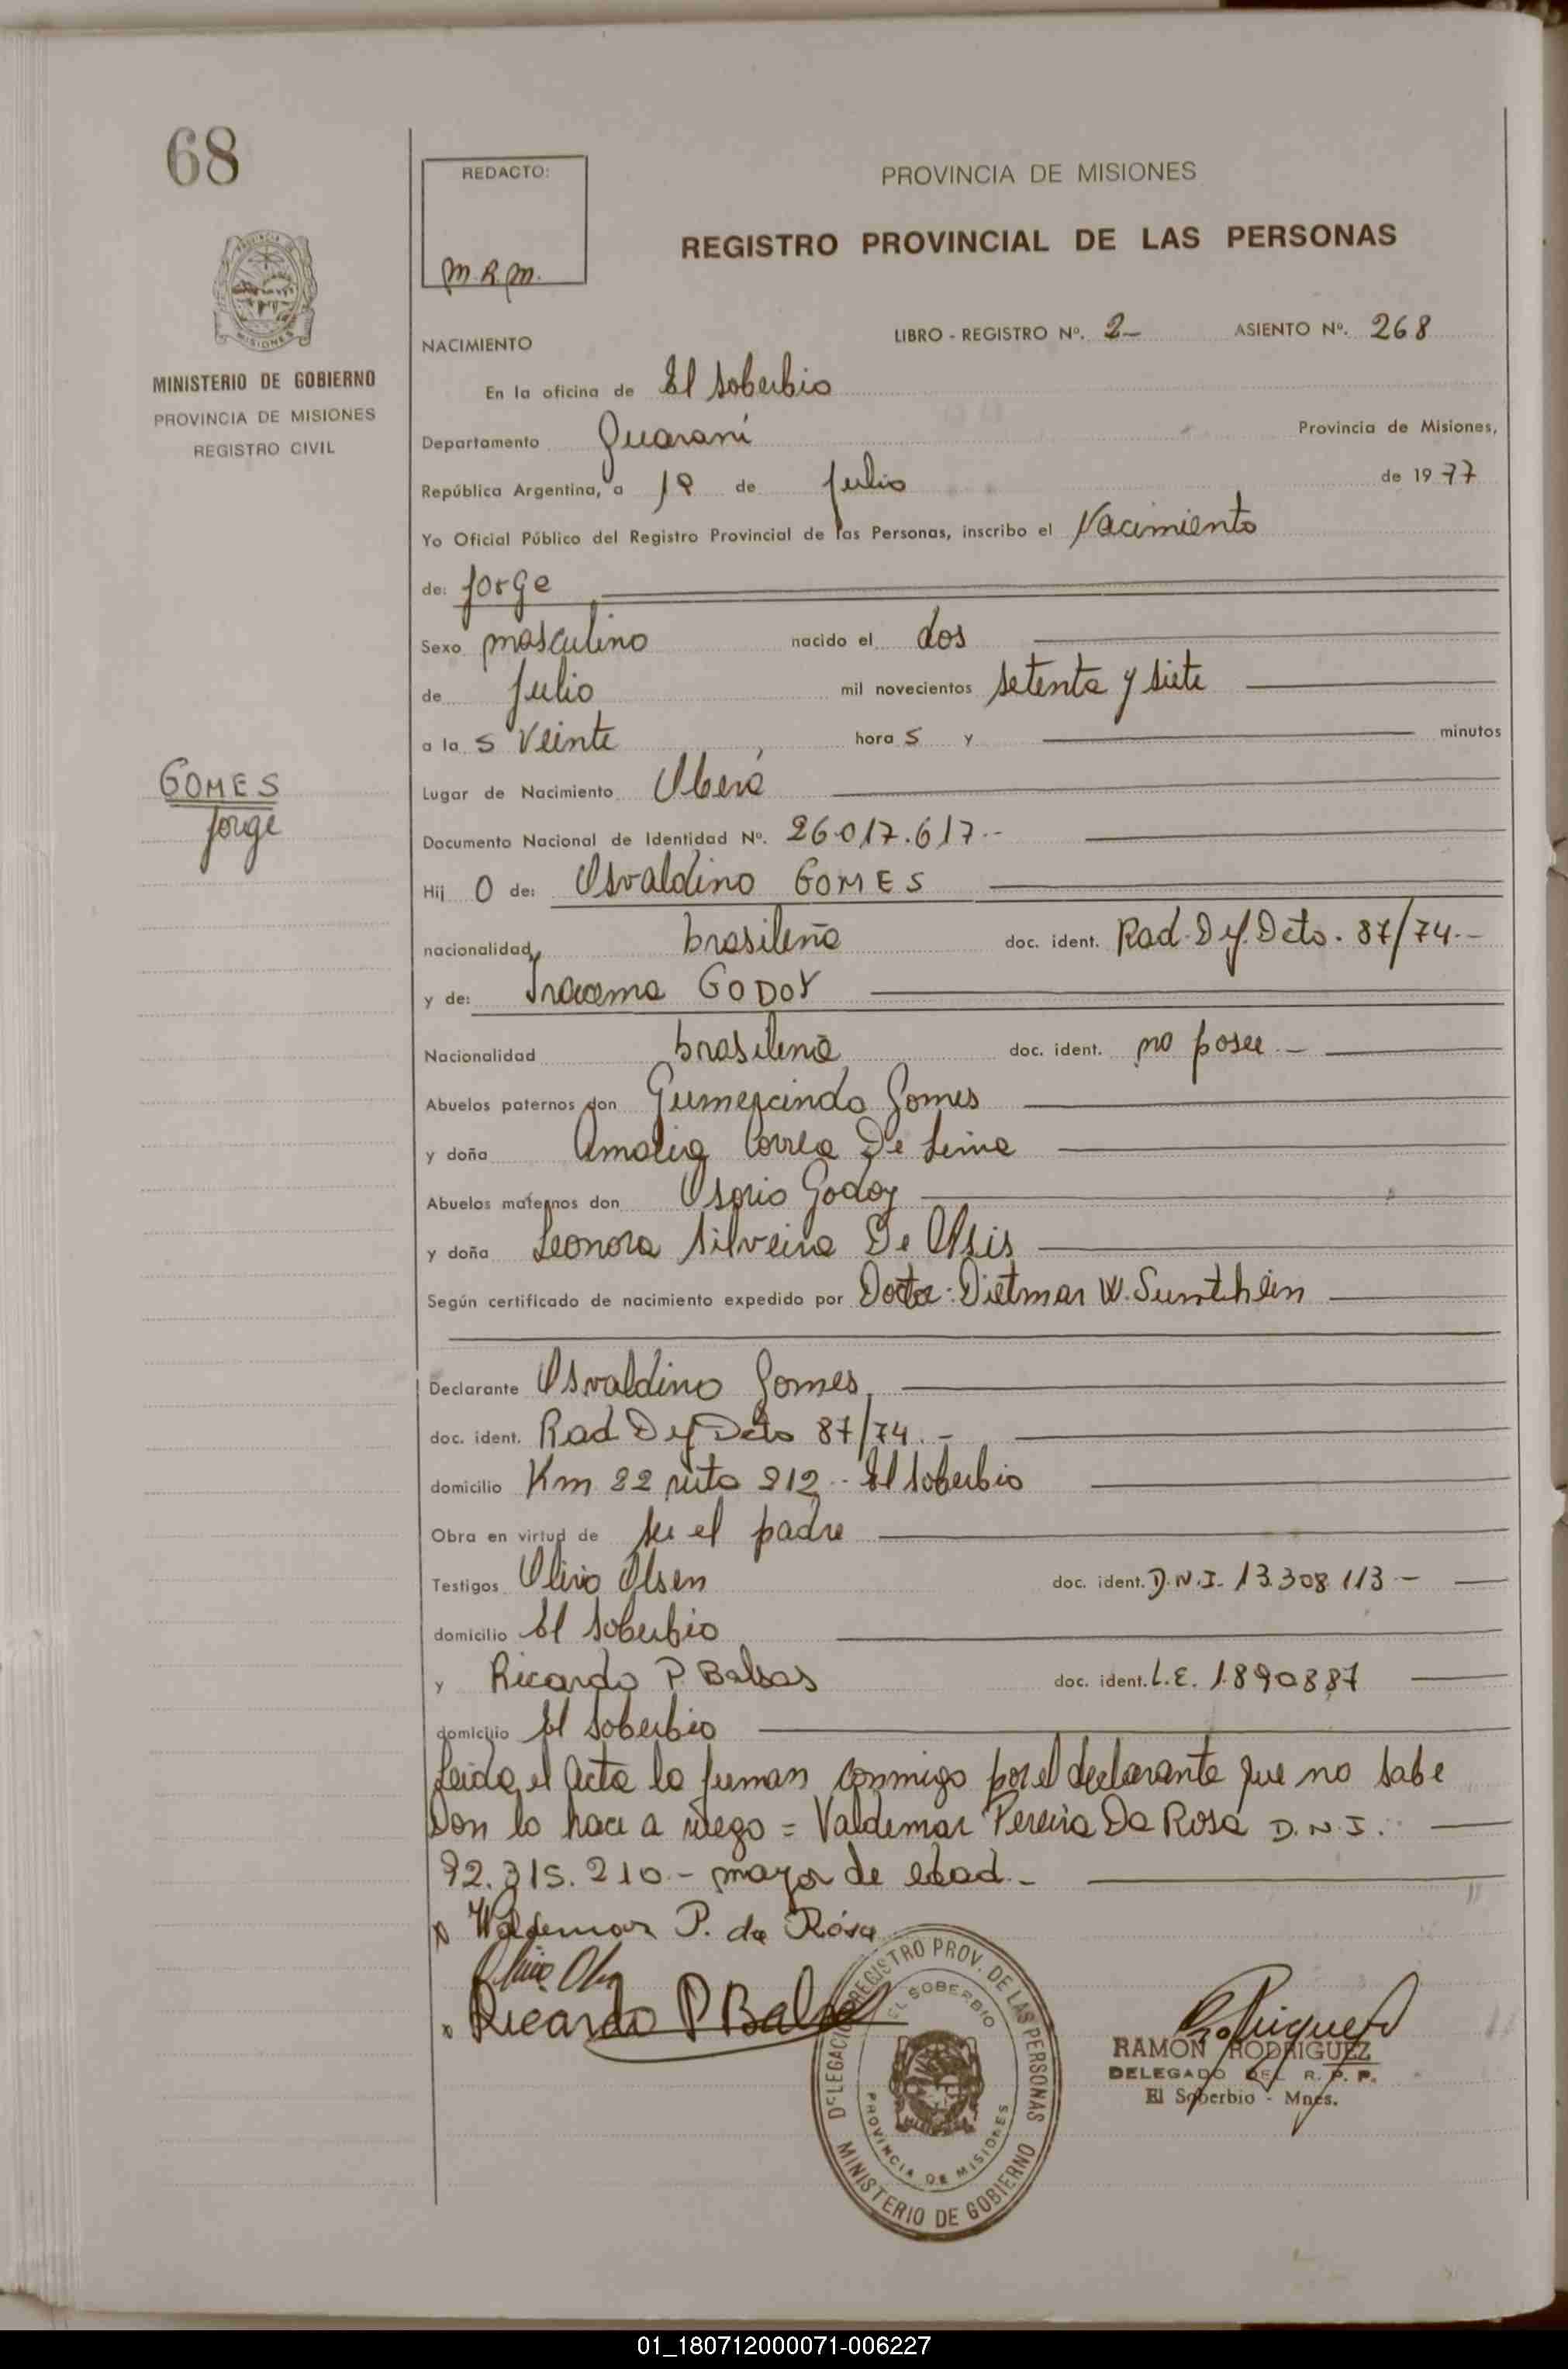 68
REDACTO:
M.R.M.
PROVINCIA DE MISIONES
REGISTRO PROVINCIAL DE LAS PERSONAS
MINISTERIO DE GOBIERNO
PROVINCIA DE MISIONES
REGISTRO CIVIL
LIBRO - REGISTRO Nº. 2- ASIENTO Nº. 268
NACIMIENTO
En la oficina de El Soberbio
Departamento Guaraní Provincia de Misiones,
República Argentina, a de Julio de 1977
Yo Oficial Público del Registro Provincial de las Personas, inscribo el Nacimiento
de: Jorge
Sexo masculino nacido el dos
de Julio mil novecientos setenta y siete
a las veinte horas y minutos
GOMES
Jorge
Lugar de Nacimiento Oberá
Documento Nacional de Identidad Nº. 26.017.617.-
Hijo de: Osvaldino GOMES
nacionalidad brasileña doc. ident. Rad. Def. Dcto. 87/74.-
y de: Iracema GODOY
Nacionalidad brasileña doc. ident. no posee.-
Abuelos paternos don Gumercindo Gomes
y doña Amalia Correa De Lima
Abuelos maternos don Osorio Godoy
y doña Leonora Silveira De Assis
Según certificado de nacimiento expedido por Doctor: Dietmar W.
Declarante Osvaldino Gomes
doc. ident. Rad Def Dcto 87/74.-
domicilio Km 22 ruta 212 - El Soberbio
Obra en virtud de ser el padre
Testigos Olivio Olsen doc. ident. D.N.I. 13.308.113-
domicilio El Soberbio
y Ricardo P Balsas doc. ident. L.E. 1.890.887
domicilio El Soberbio
Leida el Acta la firman conmigo por el declarante que no sabe
lo hace a ruego = Valdemar Pereira Da Rosa D.N.I.
92.315.210.- mayor de edad.-
Waldemar P. da Rósa
Ricardo P Balsas
DELEGACION REGISTRO PROV. DE LAS PERSONAS
EL SOBERBIO
PROVINCIA DE MISIONES
MINISTERIO DE GOBIERNO
RAMON RODRIGUEZ
DELEGADO DEL R. P. P.
El Soberbio - Mnes.
01_180712000071-006227